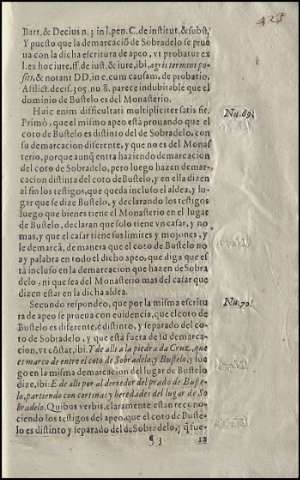 Bart. & Decius n. 3 in l. pen. C. de institut. & subst.
Y puesto que la demarcació de Sobradelo se prue
ua con la dicha escritura de apeo, vt probatur ex
l. ex hoc iure, ff. de iust. & iure, ibi, agris termini po-
siti, & notant DD. in c. cum causam, de probatio.
Afflict. decis. 305. nu. 8. parece indubitable que el
dominio de Bustelo es del Monasterio.
Huic enim difficultati multipliciter satis fit.
Primò, que el mismo apeo está prouando que el
coto de Bustelo es distinto del de Sobradelo, con
su demarcacion diferente, y que no es del Monas
terio, porque aunq̃ entra haziendo demarcacion
del coto de Sobradelo, pero luego hazen demar-
cacion distinta del coto de Bustelo, y en ella dizen
al fin los testigos, que queda incluso el aldea, y lu-
gar que se dize Bustelo, y declarando los testigos
luego que bienes tiene el Monasterio en el lugar
de Bustelo, declaran que solo tiene vn casar, y no
mas, y que el casar tiene sus limites y mojones, y
le demarcã, de manera que el coto de Bustelo no
ay palabra en todo el dicho apeo, que diga que es
tà incluso en la demarcacion que hazen de Sobra
delo, ni que sea del Monasterio mas del casar que
dizen estar en la dicha aldea.
Secundo respondeo, que por la misma escritu
ra de apeo se prueua con euidencia, que el coto de
Bustelo es diferente, è distinto, y separado del co-
to de Sobradelo, y que està fuera de su demarca-
cion, vt cõstat, ibi: Y de alli a la piedra da Cruz, que
es marco de entre el coto de Sobradelo, y Bustelo, y lue
go en la misma demarcacion del lugar de Bustelo
dize, ibi: E de alli por al derredor del prado de Buste-
lo, partiendo con cortinas y heredades del lugar de So
bradelo. Quibus verbis claramente estan recono-
ciendo los testigos del apeo, que el coto de Buste-
lo es distinto y separado del de Sobradelo, y q̃ fue-
¶ 3
ra
Nu. 69.
Nu. 70.